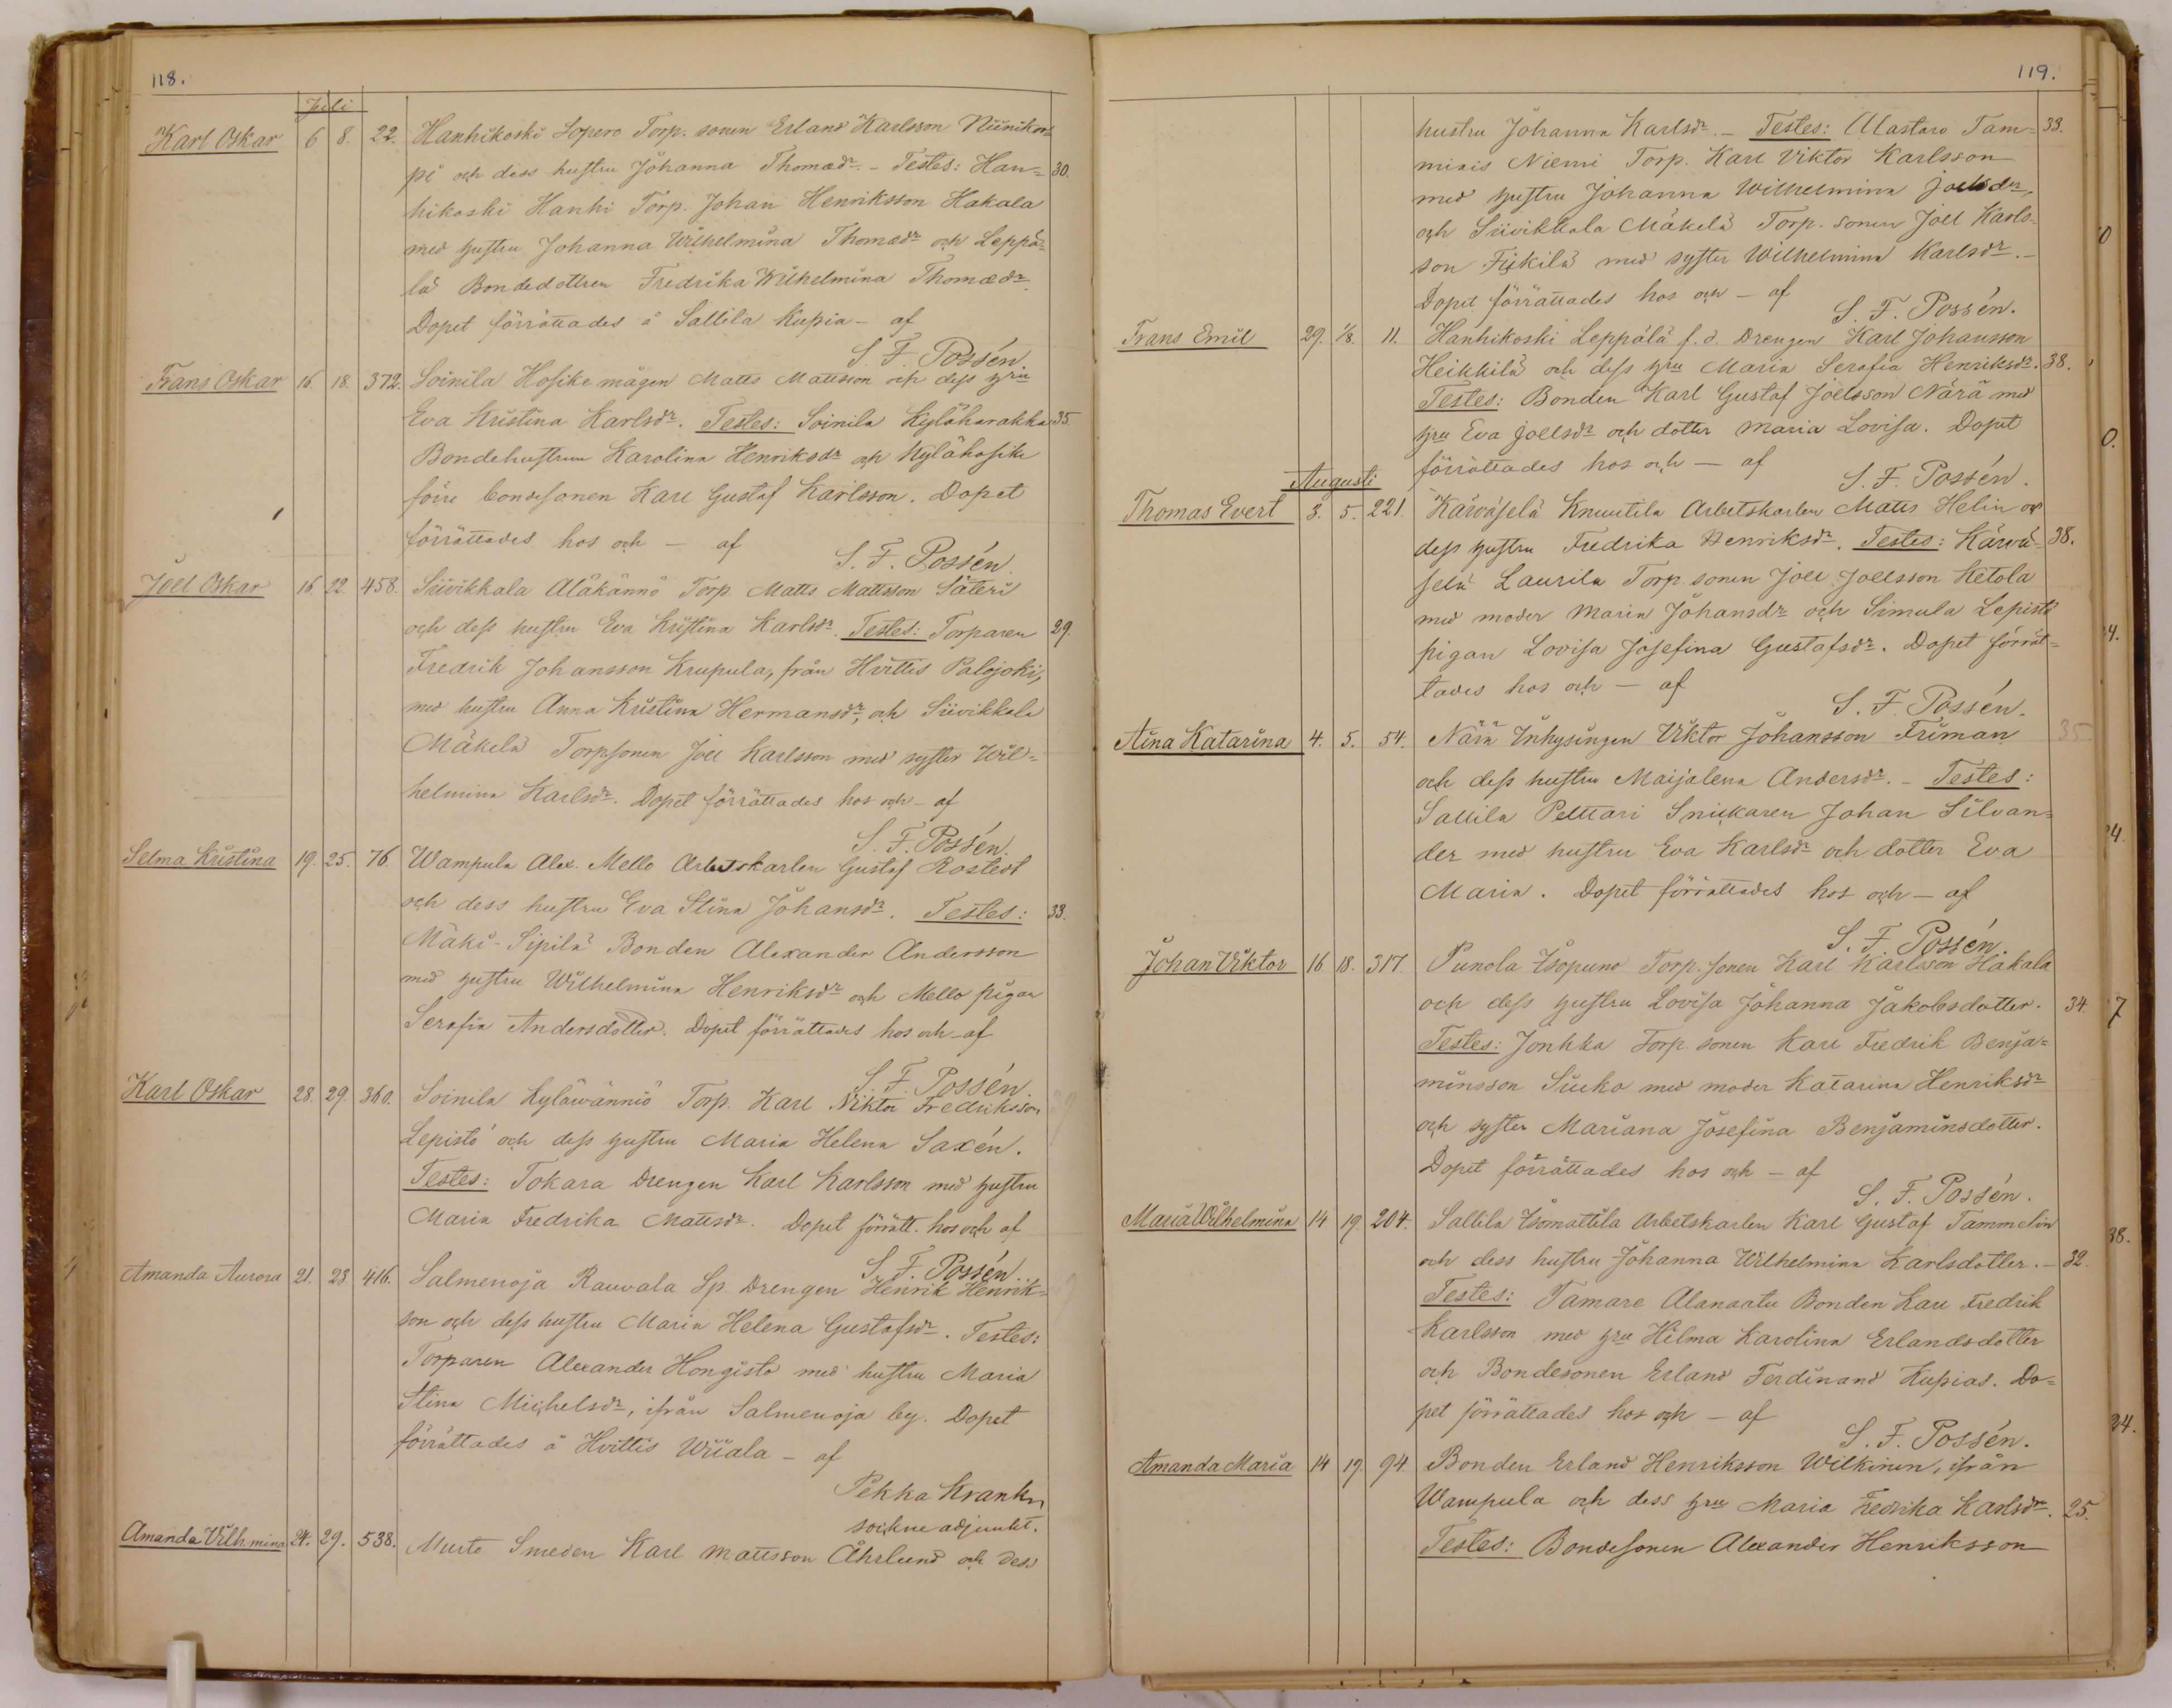 118.
Juli
Karl Oskar 6 8. 22. Hanhikoski Sopero Torp. sonen Erland Karlsson Niinikos
pi och dess hustru Johanna Thomædr. - Testes: Han= 30.
hikoski Hanhi Torp. Johan Henriksson Hakala
med hustru Johanna Wilhelmina Thomædr och Leppä=
lä Bondedottren Fredrika Wilhelmina Thomædr.
Dopet förrättades å Sallila Kupia - af
S. F. Possén.
Frans Oskar 16. 18. 372. Soinila Hosike mågen Matts Mattsson och dess hru
Eva Kristina Karlsdr. Testes: Soinila Kyläharakka 35
Bondehustrun Karolina Henriksdr och Kylähosike
förre bondesonen Karl Gustaf Karlsson. Dopet
förrättades hos och - af
S. F. Possén.
Joel Oskar 16. 22. 458. Siivikkala Aläkännö Torp. Matts Mattsson Säteri
och dess hustru Eva Kristina Karlsdr. Testes: Torparen 29.
Fredrik Johansson Krupula, från Hvittis Palojoki,
med hustru Anna Kristina Hermansdr, och Siivikkala
Mäkelä Torpsonen Joel Karlsson med syster Wil=
helmina Karlsdr. Dopet förrättades hos och - af
S. F. Possén.
Selma Kristina 19. 25. 76. Wampula Alex. Mello Arbetskarlen Gustaf Rostedt
och dess hustru Eva Stina Johansdr. Testes: 33.
Mäki-Sipilä Bonden Alexander Andersson
med hustru Wilhelmina Henriksdr och Mello pigan
Serafia Andersdotter. Dopet förrättades hos och - af
S. F. Possén.
Karl Oskar 28. 29. 360. Soinila Kyläwänniö Torp. Karl Viktor Fredriksson
Lepistö och dess hustru Maria Helena Saxén.
Testes: Tokara Drengen Karl Karlsson med hustru
Maria Fredrika Mattsdr. Dopet förrätt. hos och af
S. F. Possén.
Amanda Aurora 21. 23. 416. Salmenoja Rauvala Sp. Drengen Henrik Henrik=
son och dess hustru Maria Helena Gustafsdr. Testes:
Torparen Alexander Hongisto med hustru Maria
Stina Michelsdr, ifrån Salmenoja by. Dopet
förrättades å Hvittis Wiiala - af
Pekka Krankn
sockne adjunkt.
Amanda Wilh.mina 24. 29. 538. Murto Smeden Karl Mattsson Åhrlund och dess
119.
hustru Johanna Karlsdr. - Testes: Alastaro Tam= 33.
miais Niemi Torp. Karl Viktor Karlsson
med hustru Johanna Wilhelmina Joelsdr
och Siivikkala Mäkelä Torp. sonen Joel Karls-
son Fiskilä med syster Wilhelmina Karlsdr. -
Dopet förrättades hos och - af
S. F. Possén.
Frans Emil 29. 1/8. 11. Hanhikoski Leppälä f. d. Drengen Karl Johansson
Heikkilä och dess hru Maria Serafia Henriksdr. 38.
Testes: Bonden Karl Gustaf Joelsson Närä med
hru Eva Joelsdr och dotter Maria Lovisa. Dopet
förrättades hos och - af
S. F. Possén.
Augusti
Thomas Evert 3. 5. 221. Kärväselä Knuutila Arbetskarlen Matts Helin och
dess hustru Fredrika Henriksdr. Testes: Kärvä= 38.
selä Laurila Torp. sonen Joel Joelsson Ketola
med moder Maria Johansdr och Simula Lepistö
pigan Lovisa Josefina Gustafsdr. Dopet förrät=
tades hos och - af
S. F. Possén.
Aina Katarina 4. 5. 54. Närä Inhysingen Viktor Johansson Friman 35
och dess hustru Maijalena Andersdr. - Testes:
Sallila Pelttari Snickaren Johan Silvan=
der med hustru Eva Karlsdr och dotter Eva
Maria. Dopet förrättades hos och - af
S. F. Possén.
Johan Viktor 16 18. 317. Punola Isopuno Torp. sonen Karl Karlsson Hakala
och dess hustru Lovisa Johanna Jakobsdotter. 34.
Testes: Jonkka Torp. sonen Karl Fredrik Benja=
minsson Siuko med moder Katarina Henriksdr
och syster Mariana Josefina Benjaminsdotter.
Dopet förrättades hos och - af
S. F. Possén.
Maria Wilhelmina 14 19 204. Sallila Isomattila Arbetskarlen Karl Gustaf Tammelin
och dess hustru Johanna Wilhelmina Karlsdotter. - 32.
Testes: Tamare Alanaatu Bonden Karl Fredrik
Karlsson med hru Hilma Karolina Erlandsdotter
och Bondesonen Erland Ferdinand Kupias. Do=
pet förrättades hos och - af
S. F. Possén.
Amanda Maria 14 19. 94. Bonden Erland Henriksson Wilkinen, ifrån
Wampula och dess hru Maria Fredrika Karlsdr. 25.
Testes: Bondesonen Alexander Henriksson